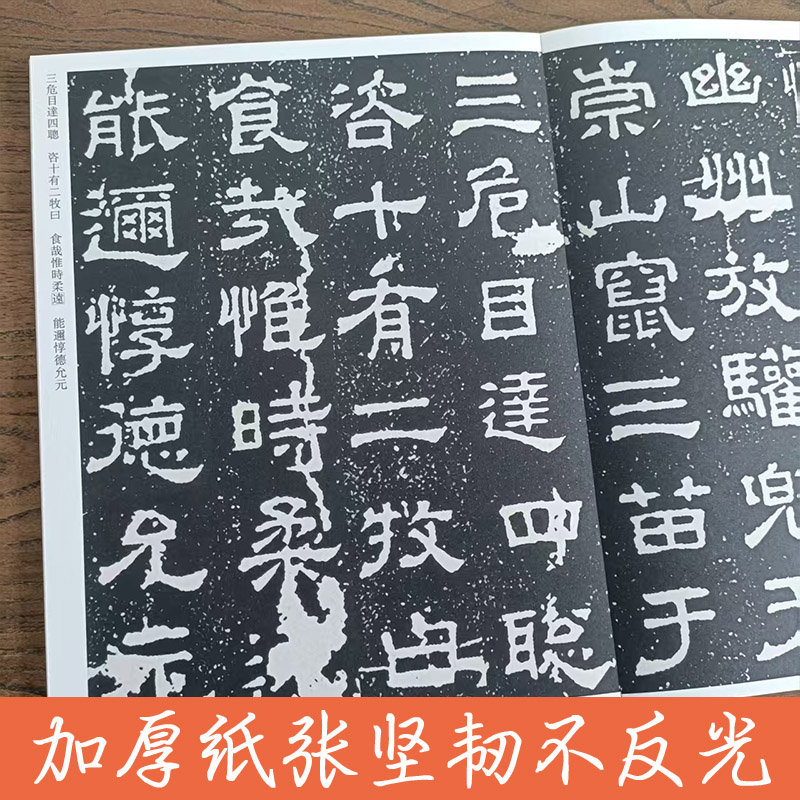 幽州放驩兜于
崇山竄三苗于
三危目達四聰
咨十有二牧曰
食哉惟時柔遠
能邇惇德允元
三危目達四聰　咨十有二牧曰　食哉惟時柔遠　能邇惇德允元
加厚纸张坚韧不反光